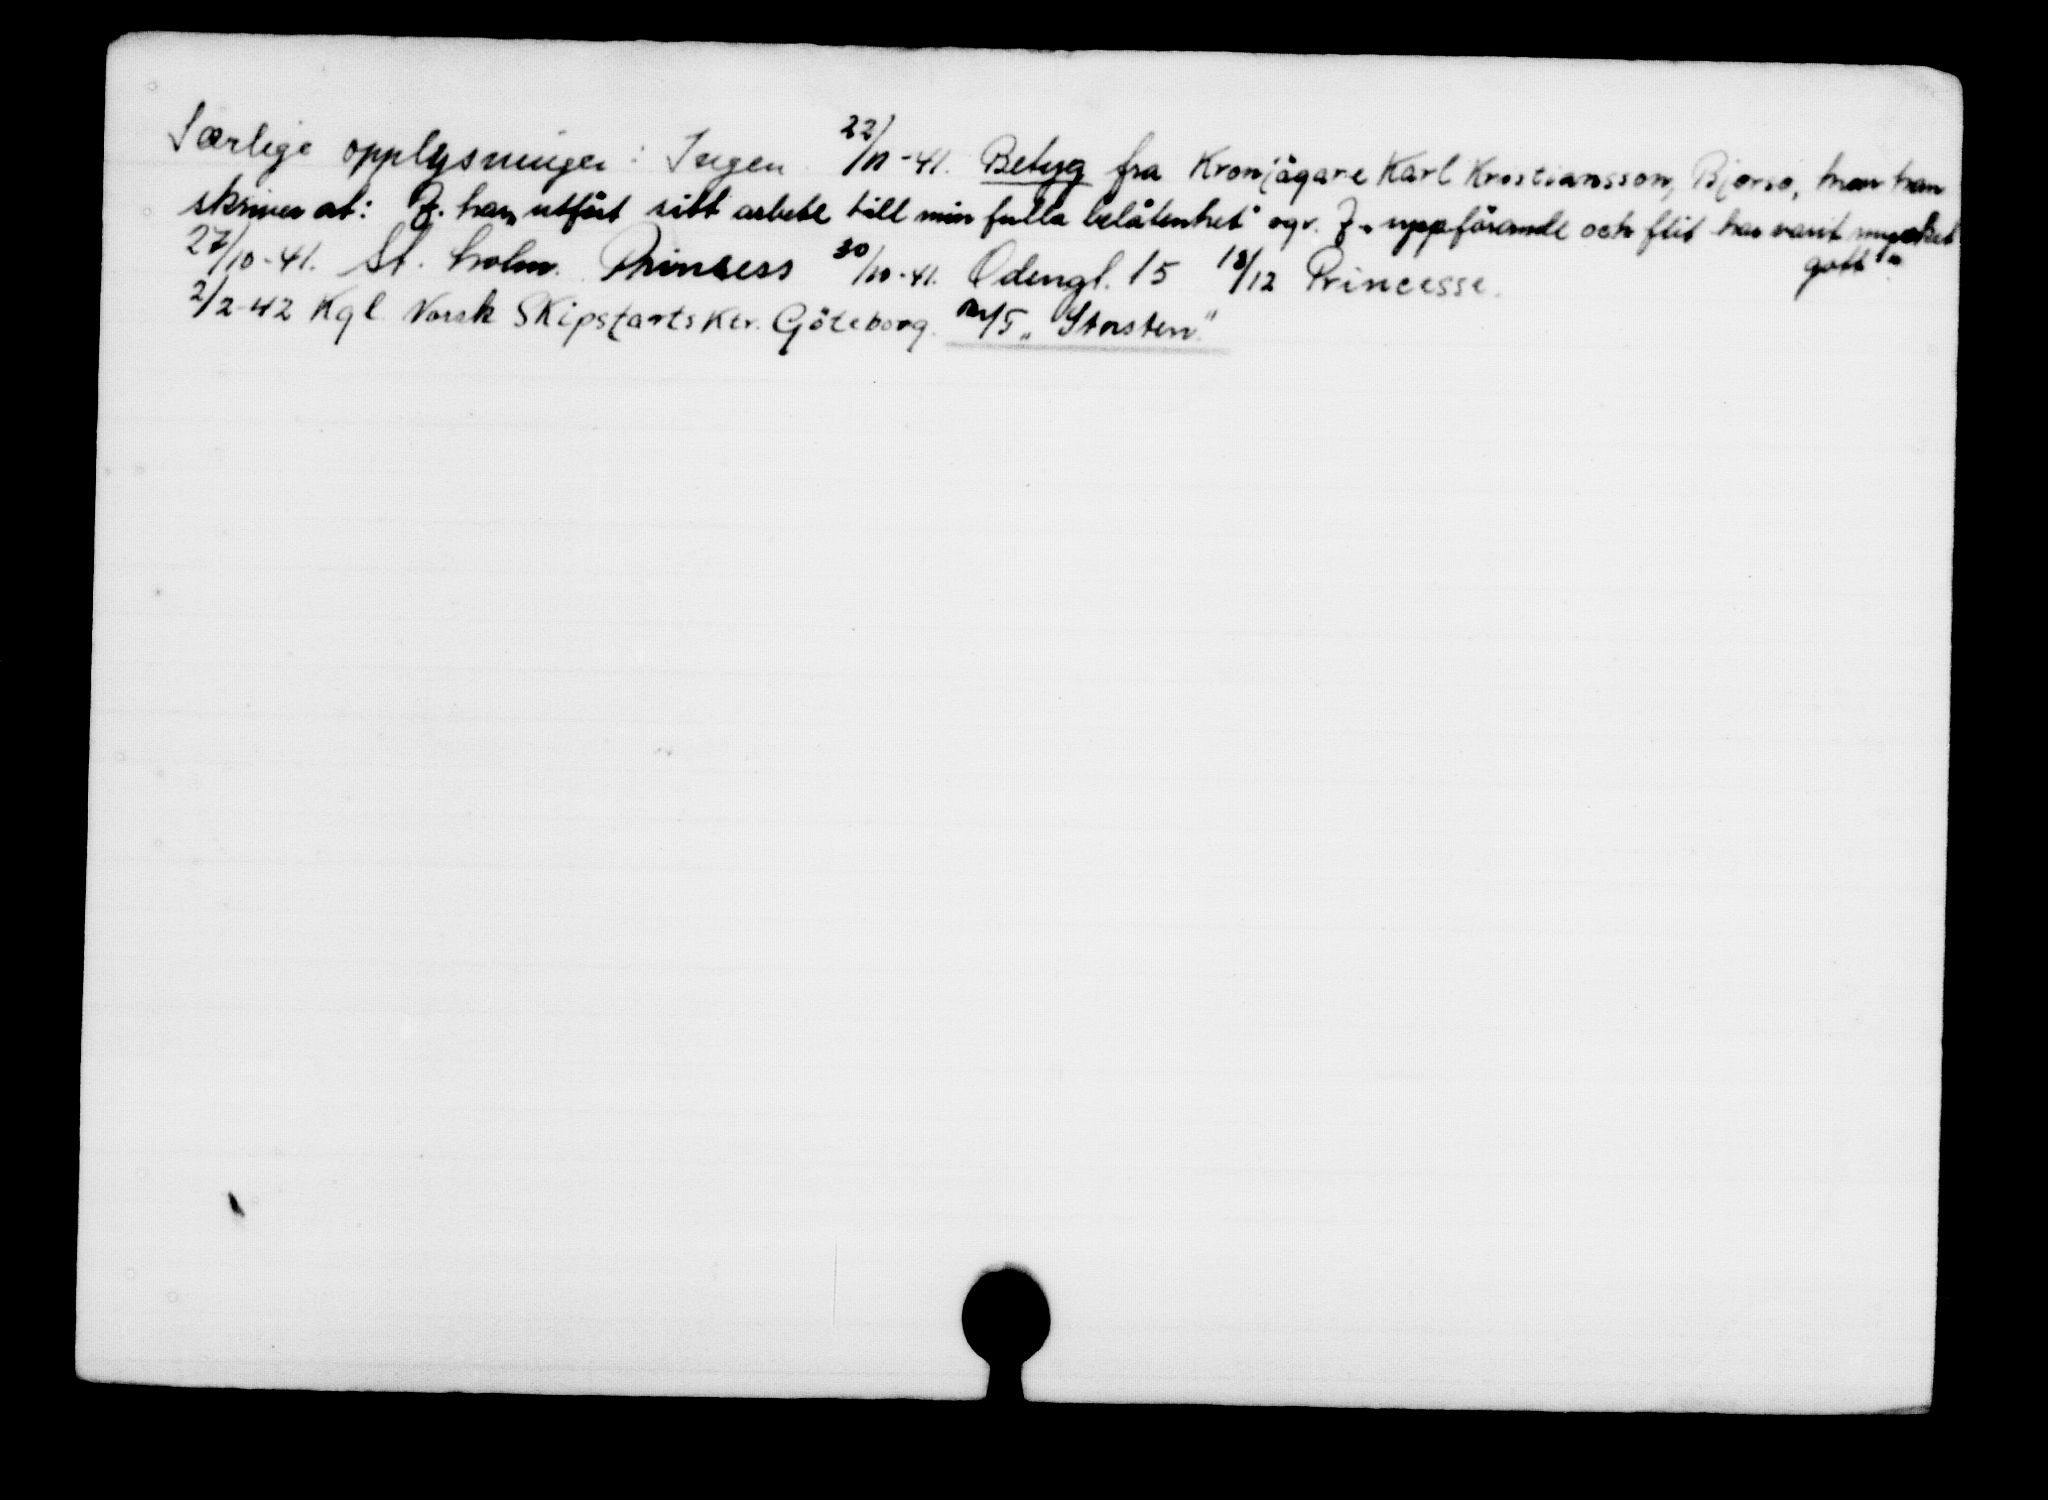 Særlige opplysninger: Ingen. 22/11-41. Betyg fra Kronjägare Karl Kristiansson, Bjorso, hvor han
skriver at: Z. har „utført sitt arbete till min fulla belåtenhet" ogs. Z. „uppförande och flit har varit mycket
gott".
27/10-41. St. holm. Prinsess 30/10-41. Odengt. 15 18/12 Princesse.
2/2-42 Kgl. Norsk Skipsfartsktr. Göteborg. M/T „Storsten"